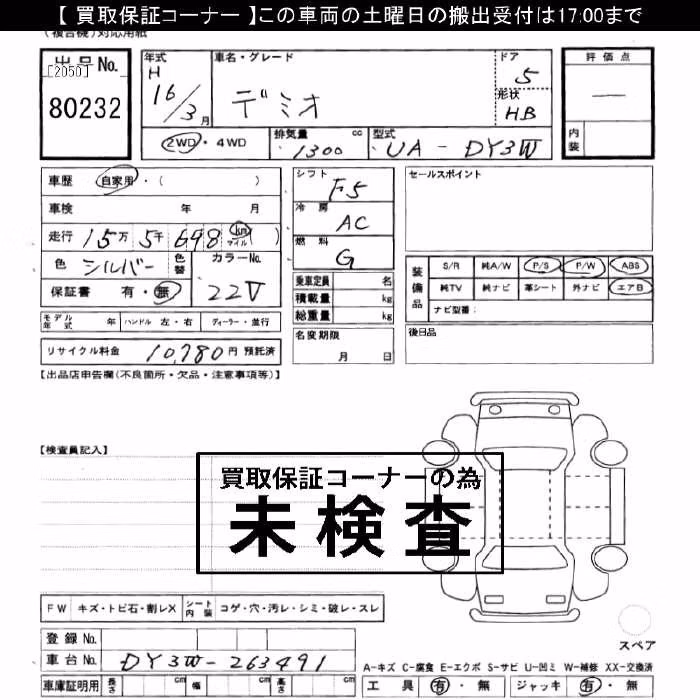 【 買取保証コーナー 】この車両の土曜日の搬出受付は17:00まで
(複合機)対応用紙
出品No.
[2050]
80232
年式
H
16/3月
車名・グレード
デミオ
ドア
5
形状
HB
評価点
―
内装
2WD・4WD
排気量
1300 cc
型式
UA - DY3W
車歴 自家用・( )
車検 年 月
走行 15万 5千 698 km マイル ( )
色 シルバー 色替
カラーNo.
22V
保証書 有・無
モデル年式 年 ハンドル 左・右 ディーラー・並行
リサイクル料金 10,780円 預託済
シフト
F5
冷房
AC
燃料
G
乗車定員 名
積載量 kg
総重量 kg
名変期限
月 日
セールスポイント
装備品
S/R 純A/W P/S P/W ABS
純TV 純ナビ 革シート 外ナビ エアB
ナビ型番:
後日品
【出品店申告欄(不良箇所・欠品・注意事項等)】
【検査員記入】
買取保証コーナーの為
未検査
FW キズ・トビ石・割レX シート内装 コゲ・穴・汚レ・シミ・破レ・スレ
登録No.
車台No. DY3W-263491
車庫証明用 長さ cm 幅 cm 高さ cm
スペア
A-キズ C-腐食 E-エクボ S-サビ U-凹ミ W-補修 XX-交換済
工具 有・無 ジャッキ 有・無